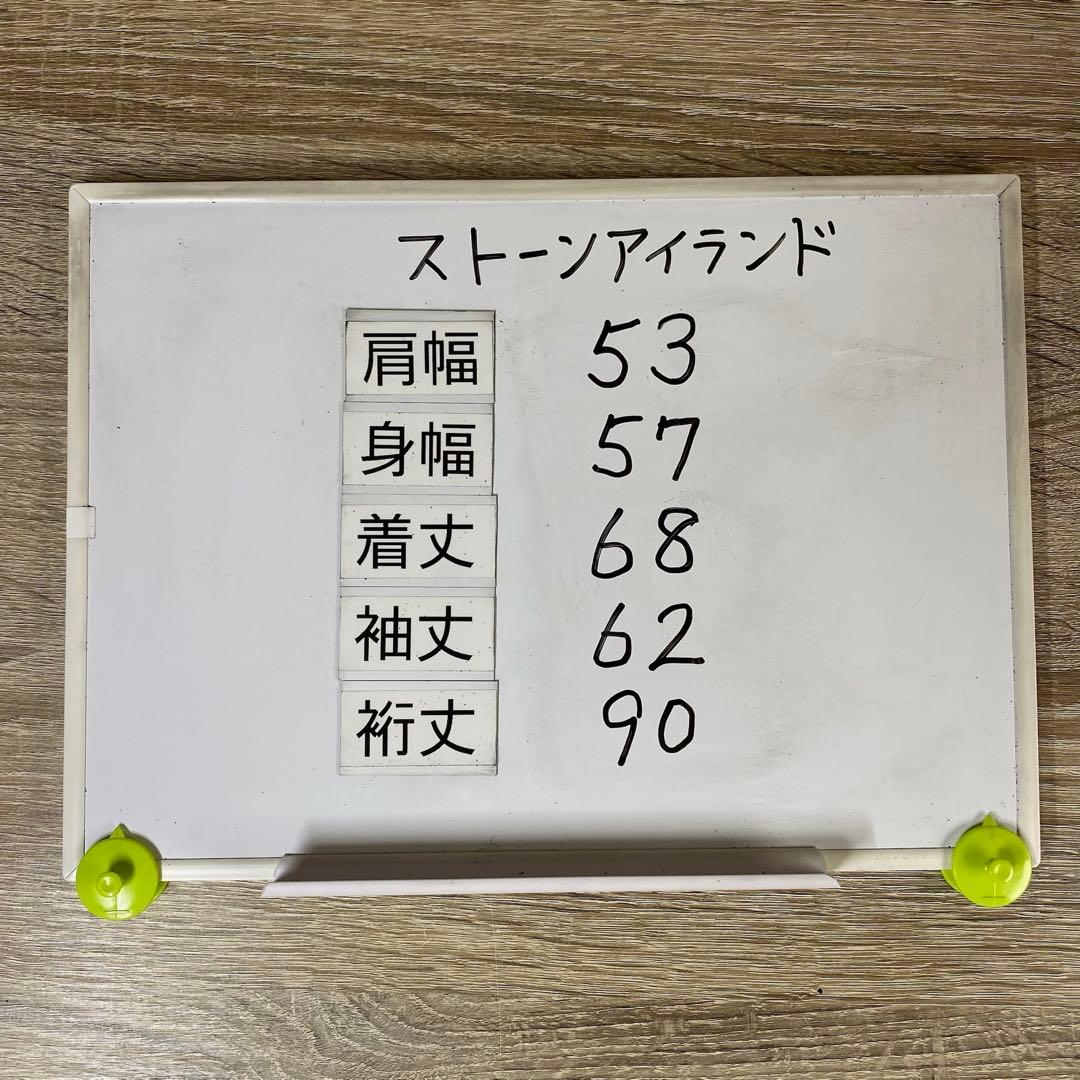 ストーンアイランド
肩幅 53
身幅 57
着丈 68
袖丈 62
裄丈 90